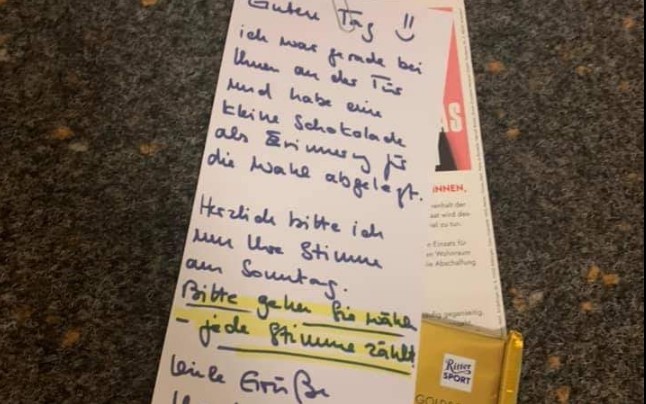 Guten Tag !!
ich war gerade bei
Ihnen an der Tür
und habe eine
kleine Schokolade
als Erinnerung für
die Wahl abgelegt.
Herzlich bitte ich
um Ihre Stimme
am Sonntag.
Bitte gehen Sie wählen
- jede Stimme zählt!
Liebe Grüße
AS
INNEN,
enhalt der
aat wird das
al zu tun.
n Einsatz für
en Wohnraum
ie Abschaffung
gegenseitig.
Ritter
SPORT